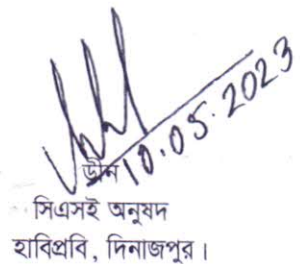 10.05.2023
ডীন
সিএসই অনুষদ
হাবিপ্রবি, দিনাজপুর।